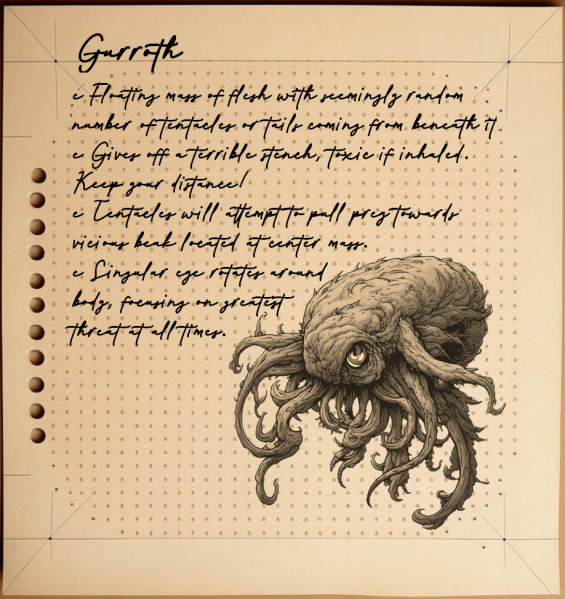 Gurroth
c Floating mass of flesh with seemingly random
number of tentacles or tails coming from beneath it.
c Gives off a terrible stench, toxic if inhaled.
Keep your distance!
c Tentacles will attempt to pull prey towards
vicious beak located at center mass.
c Singular eye rotates around
body, focusing on greatest
threat at all times.